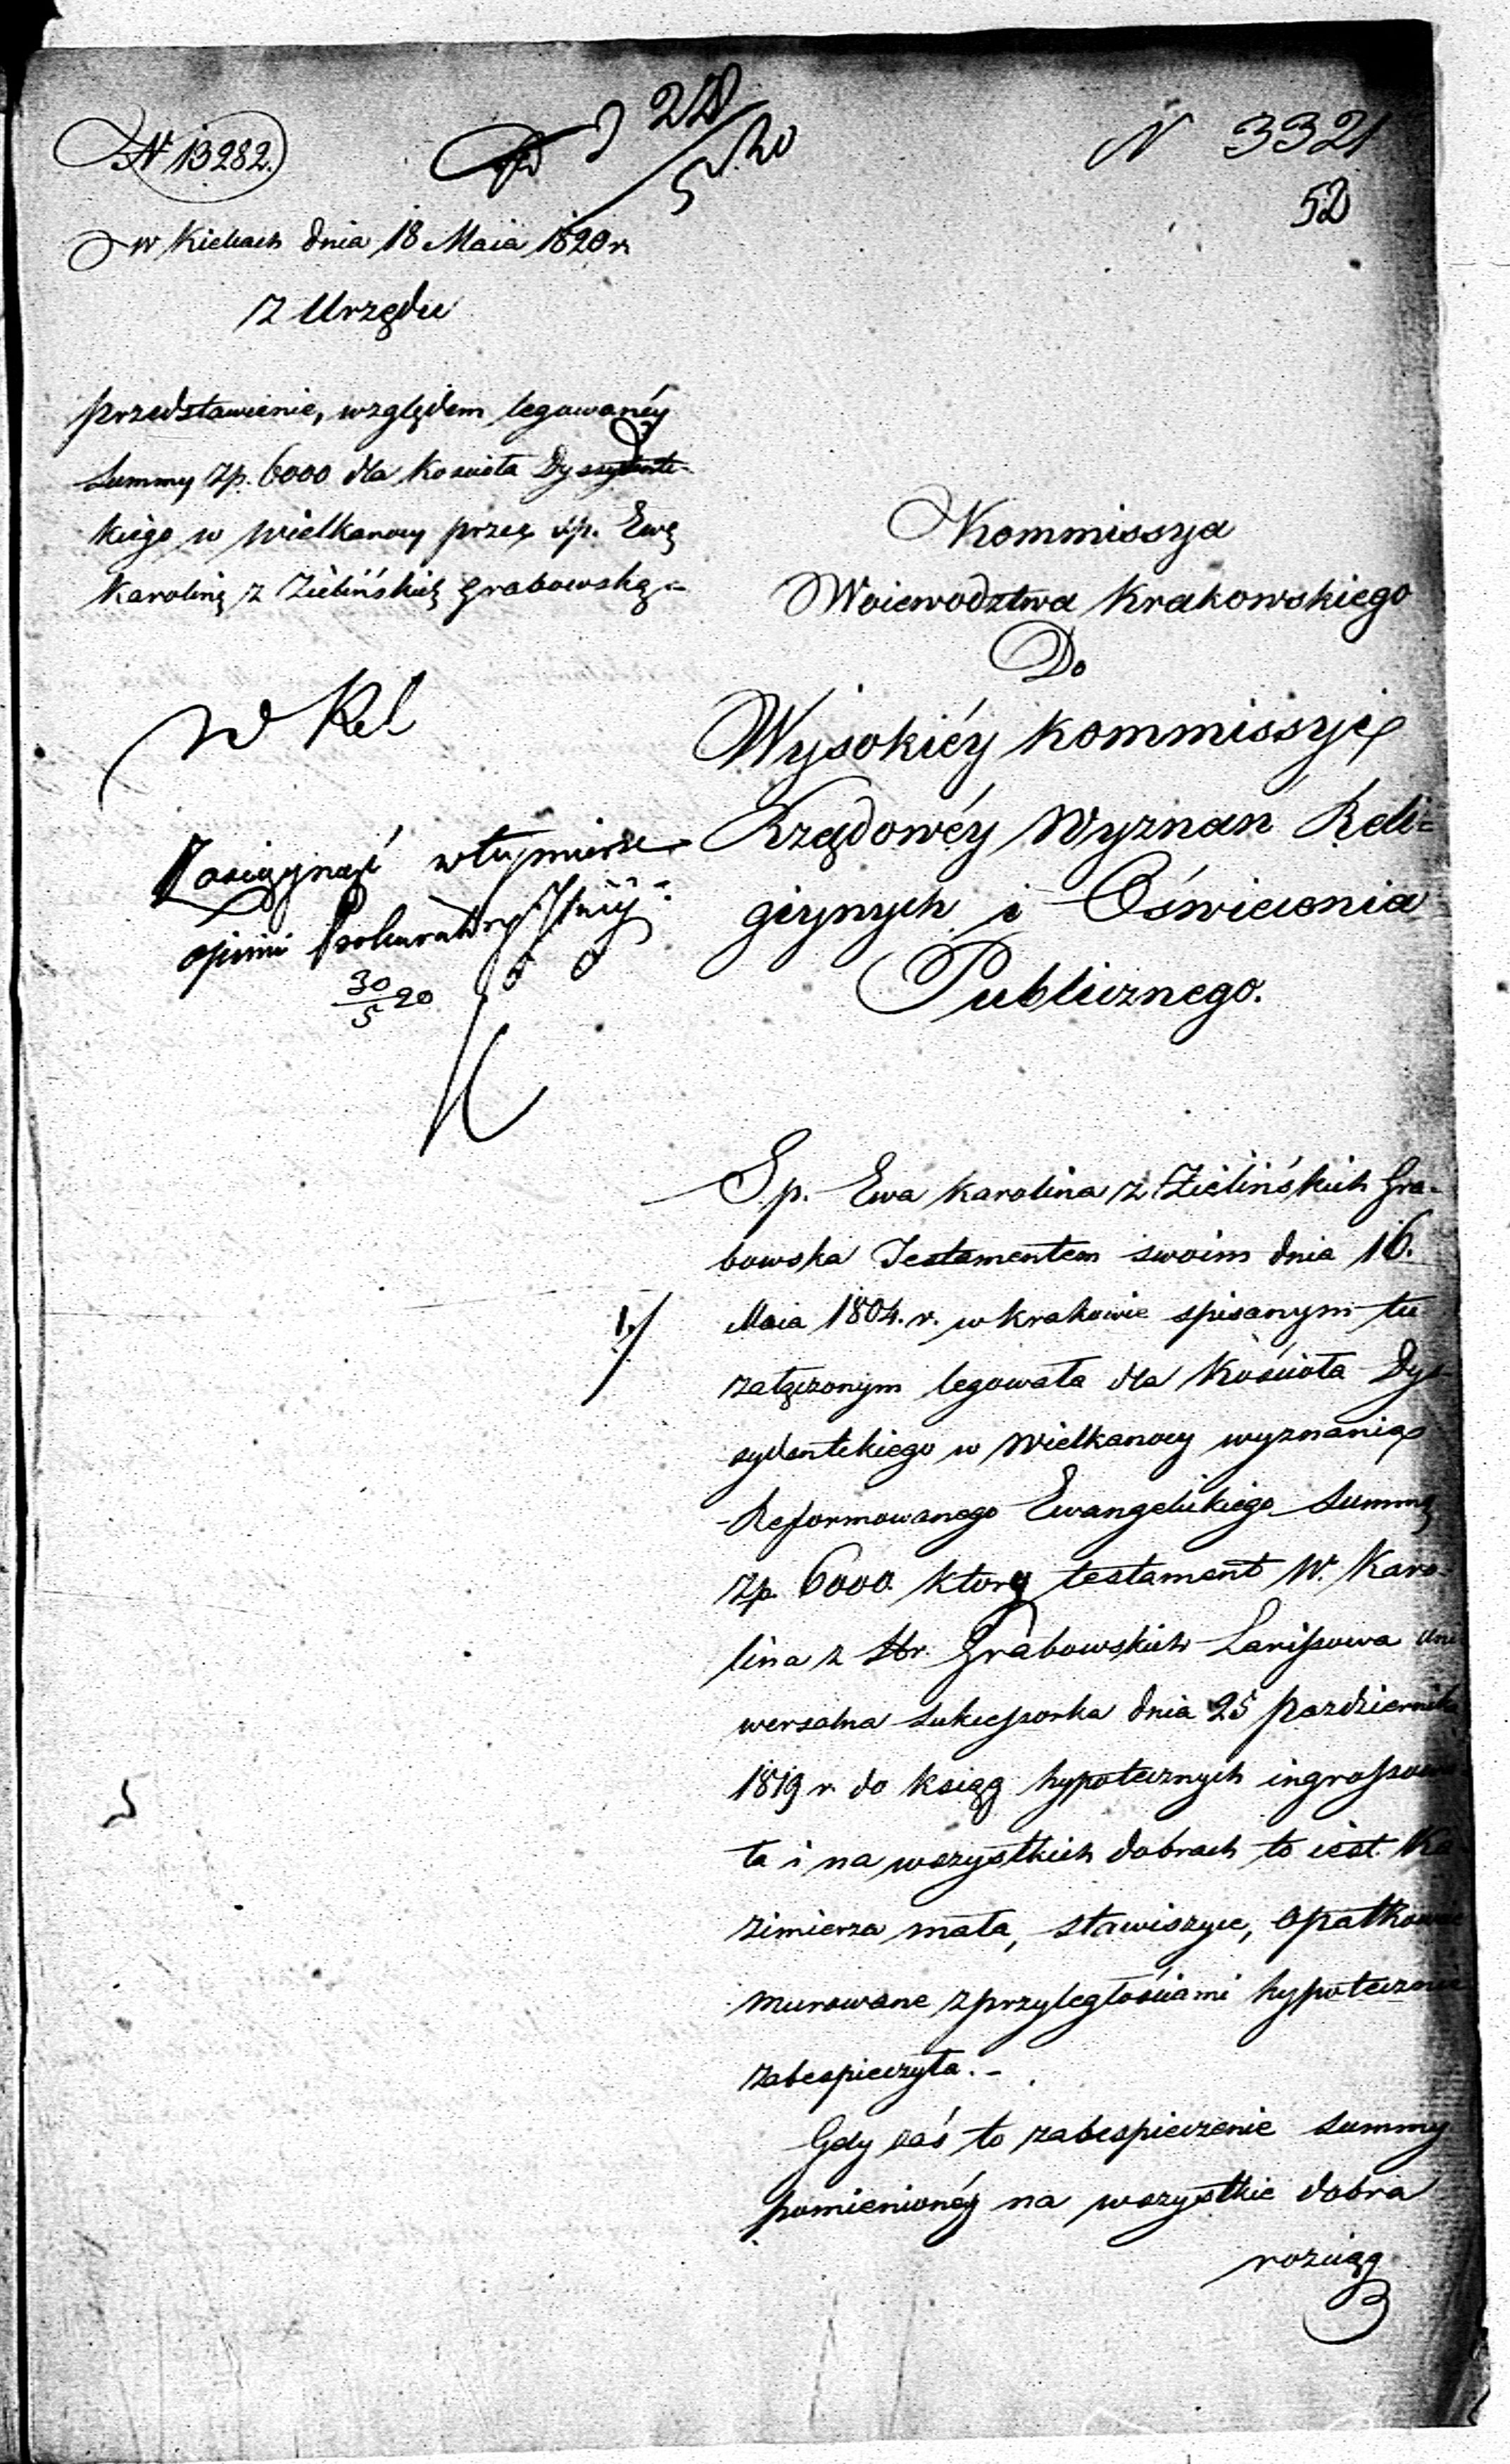 N 13282.
28/5 20
N 3321
52
w Kielcach dnia 18 Maia 1820 r.
Z Urzędu
przedstawienie, względem legowanéy
Summy zp. 6000 dla Kościoła Dyssydente-
kiego w Wielkanocy przez śp. Ewę
Karolinę z Zielińskich Grabowską.-
Kommissya
Woiewodztwa Krakowskiego
Do
Wysokiéy Kommissyi
Rządowéy Wyznań Reli=
giynych i Oświecenia
Publicznego.
W Rel
Zasięgnąć w tey mierze
opinii Prokuratoryi
30/5 20
S.p. Ewa Karolina z Zielińskich Gra-
bowska Testamentem swoim dnia 16.
1./
Maia 1804. r. w Krakowie spisanym tu
załączonym legowała dla Kościoła Dys-
sydentskiego w Wielkanocy wyznania
Reformowanego Ewangelickiego Summę
zp. 6000. ktory testament W. Karo-
lina z Hr. Grabowskich Larissowa uni
wersalna sukcessorka dnia 25 Pazdziernika
1819 r. do ksiąg hypotecznych ingrossowa
ła i na wszystkich dobrach to iest Ka
zimierza mała, Stawiszyce, Opatkowice
murowane z przyległościami hypotecznie
zabespieczyła.-
Gdy zaś to zabespieczenie summy
pomienionéy na wszystkie dobra
rozciąg